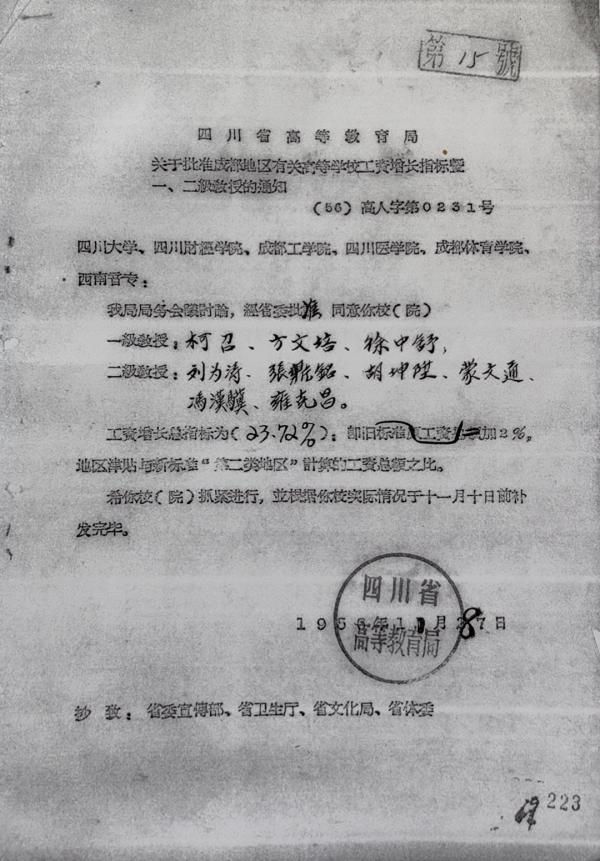 第15號
四川省高等教育局
关于批准成都地区有关高等学校工資增长指标暨
一、二級教授的通知
(56)高人字第0231号
四川大学、四川財經学院、成都工学院、四川医学院、成都体育学院、
西南音专:
我局局务会議討論,經省委批准,同意你校(院)
一級教授:柯召、方文培、徐中舒,
二級教授:刘为涛、張鼎铭、胡坤陞、蒙文通、
冯漢驥、雍克昌。
工資增长总指标为(23.72%):即旧标准 工資 加2%,
地区津貼与新标准“第二类地区”計算的工資总額之比。
希你校(院)抓紧进行,並根据你校实际情况于十一月十日前补
发完毕。
四川省
高等教育局
1956年11月8日
抄致:省委宣傳部、省卫生厅、省文化局、省体委
223